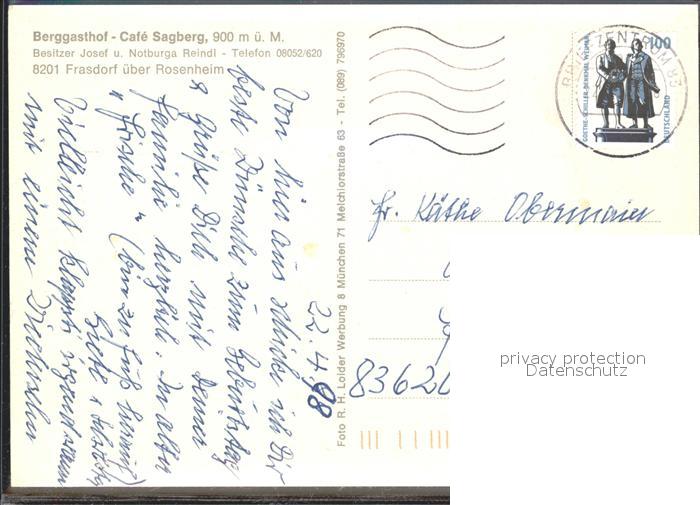 Berggasthof - Café Sagberg, 900 m ü. M.
Besitzer Josef u. Notburga Reindl - Telefon 08052/620
8201 Frasdorf über Rosenheim
Von hier aus schicke ich Dir
beste Wünsche zum Geburtstag
& grüße Dich mit Deiner
Familie herzlich. In alter
"Frische" (bin zu Fuß herauf)
Vielleicht klappt's irgendwann
mit einem
22.4.98
Foto R. H. Loider Werbung 8 München 71 Melchiorstraße 63 - Tel. (089) 796970
100
GOETHE-SCHILLER-DENKMAL WEIMAR
DEUTSCHLAND
BRIEFZENTRUM 83
Fr. Käthe Obermaier
83620
privacy protection
Datenschutz